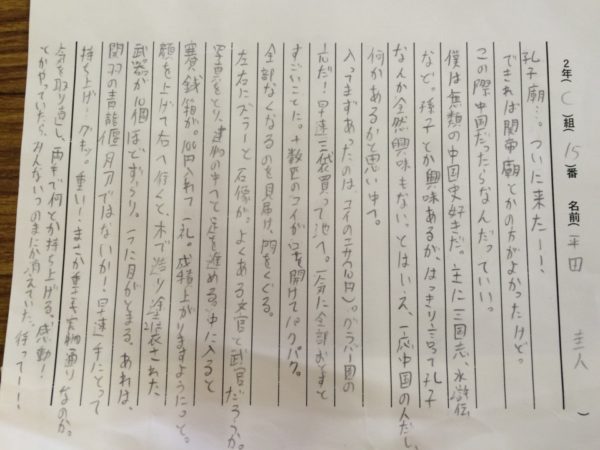 2年(C)組(15)番 名前(平田 圭人)
孔子廟…。ついに来たーー!
できれば関帝廟とかの方がよかったけど。
この際中国だったらなんだっていい。
僕は無類の中国史好きだ。主に三国志、水滸伝
など。孫子とか興味あるが、はっきり言って孔子
なんか全然興味もない。とはいえ、一応中国の人だし、
何かあるかと思い中へ。
入ってまずあったのは、コイのエサ(10円)。グラバー園の
だ!早速三袋買って池へ。一気に全部おすと
すごいことに。十数匹のコイが口を開けてパクパク。
全部なくなるのを見届け、門をくぐる。
左右にズラーと石像が。よくある文官と武官だろうか。
写真をとり、建物の中へと足を進める。中に入ると
賽銭箱が。100円入れて一礼。成績上がりますようにっと。
顔を上げて右へ行くと、木で造り塗装された、
武器が10個ほどずらり。一つに目がとまる。あれは、
関羽の青龍偃月刀ではないか!早速手にとって
持ち上げ…グホッ。重い!まさか重量も本物通りなのか。
気を取り直し、両手で何とか持ち上げる。感動!
とかやっていたら、みんないつのまにか消えていた。待ってーー!